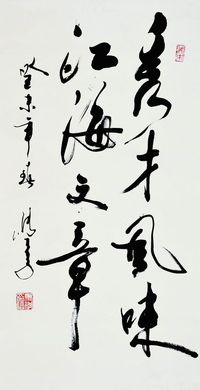 秀才風味
江海文章
癸未年春